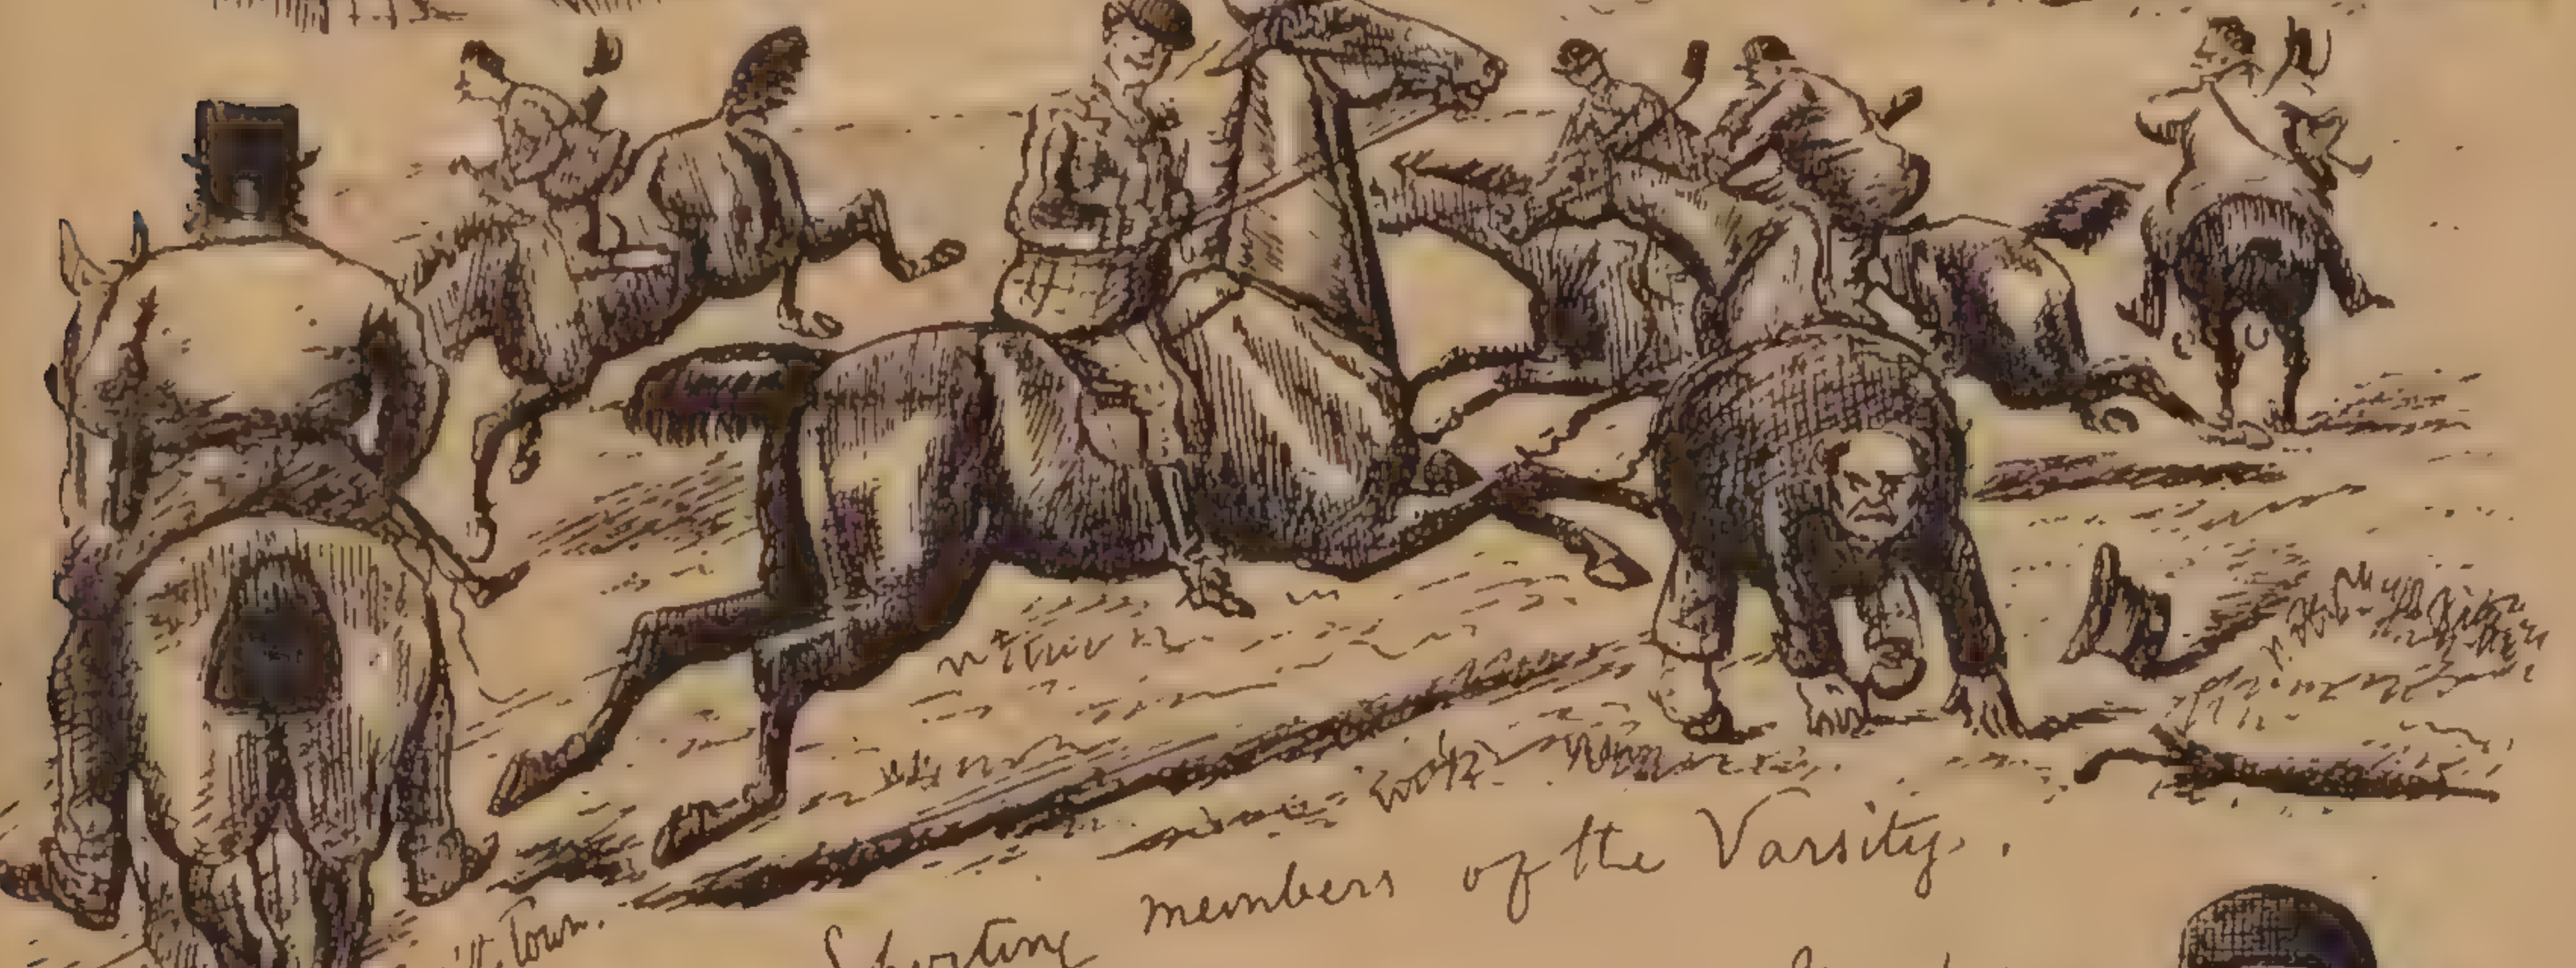 Sporting members of the Varsity.
Town.